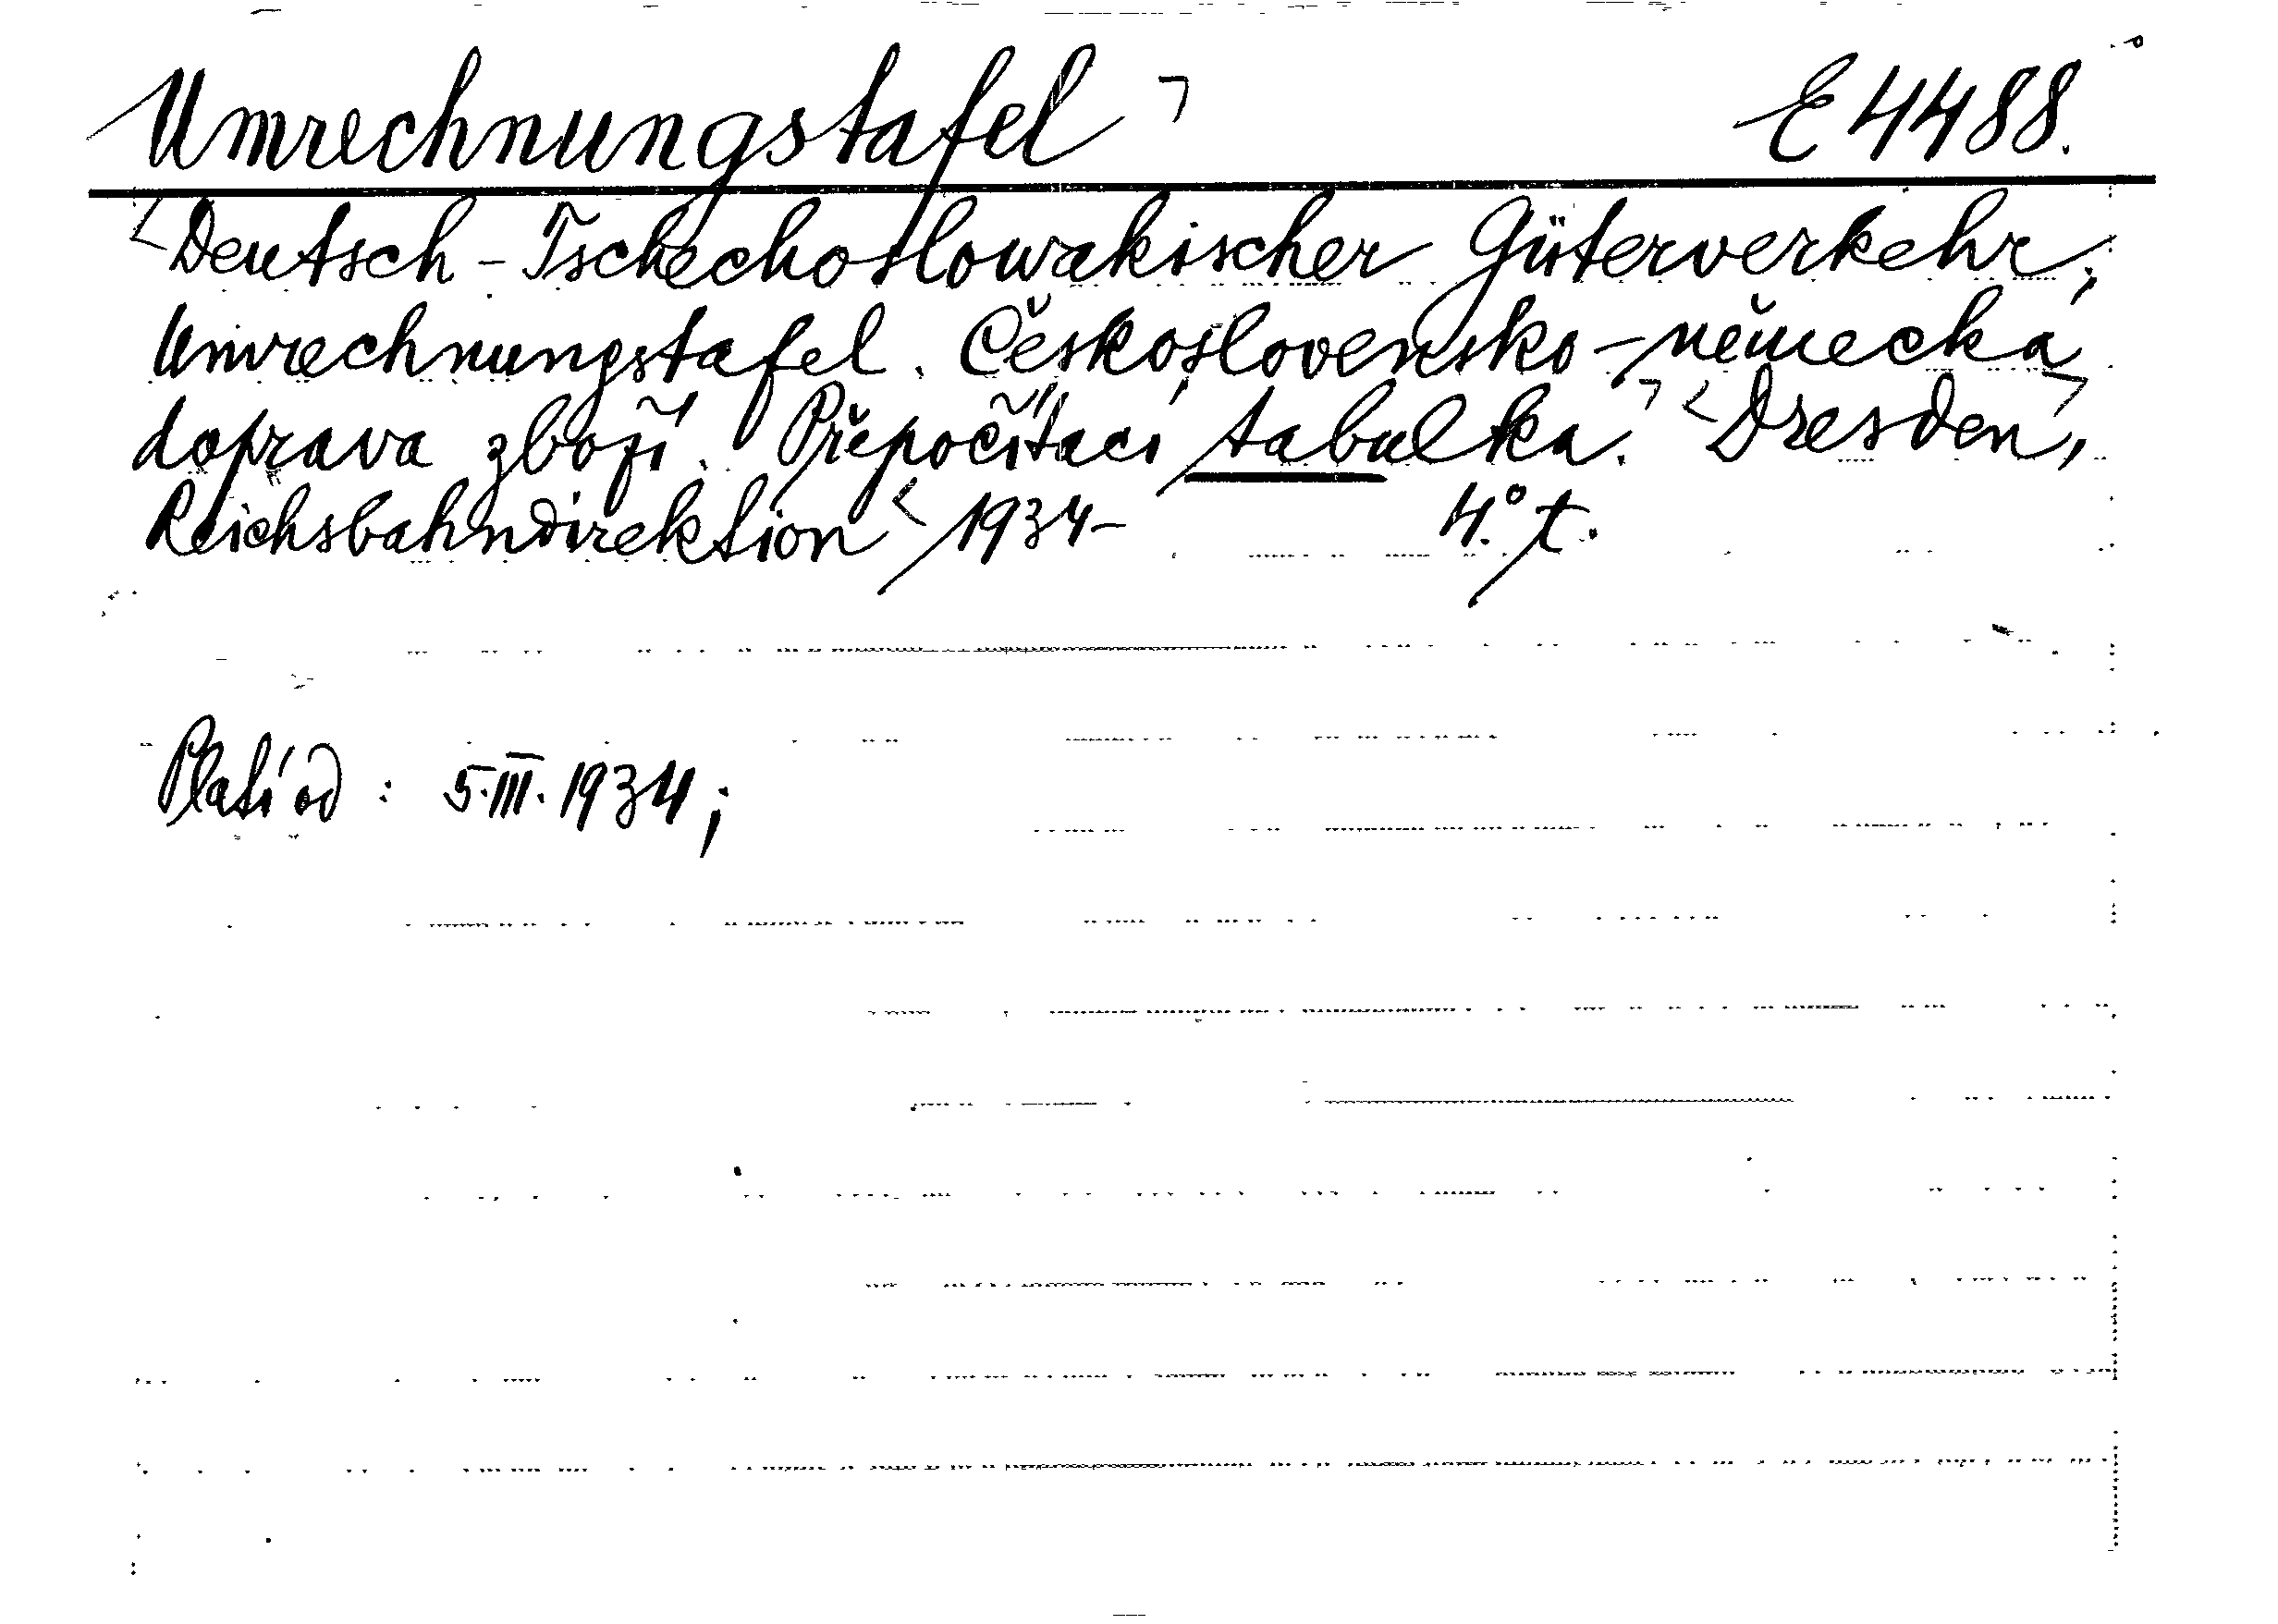 Umrechnungstafel ꓶ E 4488.
<Deutsch-Tschechoslowakischer Güterverkehr,
Umrechnungstafel. Československo-německá
doprava zboží. Přepočítací tabulka.ꓶ <Dresden,ꓶ
Reichsbahndirektion < 1934- 4.° t.
Platí od : 5.III.1934;